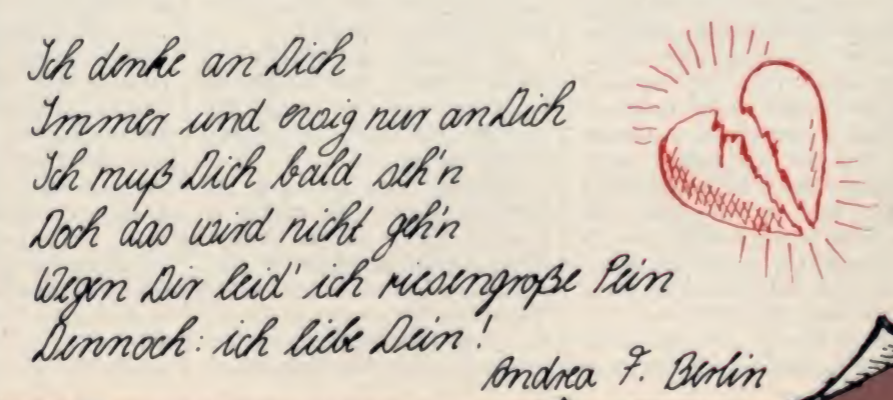 Ich denke an Dich
Immer und ewig nur an Dich
Ich muß Dich bald seh'n
Doch das wird nicht geh'n
Wegen Dir leid' ich riesengroße Pein
Dennoch: ich liebe Dein!
Andrea F. Berlin